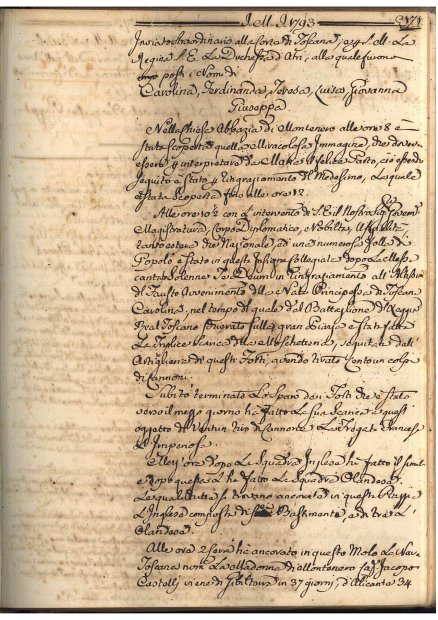 1793
alla Corte di Toscana, e
Regina S. E. La Duchessa d'Atri, alla quale furono
posti i Nomi di
Carolina, Ferdinanda, Teresa, Luisa, Giovanna
Giuseppa.
Nella Chiesa Abbazia di Montenero alle ore 8 è
stata scoperta quella Miracolosa Immagine, che doveva
essere
seguito è stato di ringraziamento del Medesimo, la quale
è stata scoperta fino alle ore 12.
Alle ore 10 con l'intervento di S. E. il Nostro Sig.
Magistratura, Corpo Diplomatico, e Nobiltà,
tanto estera che Nazionale, ed una numerosa folla di
Popolo è stato in questa Insigne Collegiata dopo la Messa
cantato Solenne Te Deum in ringraziamento all'Altissimo
del Fausto avvenimento della Nata Principessa di Toscana
Carolina, nel tempo del quale dal Battaglione del Reggio
Real Toscano sulla gran Piazza è stata fatta
La Triplice scarica della Moschetteria, seguitata dall'
Artiglieria di questi Forti, avendo tirato Cento un colpo
di Cannoni.
Subito terminato lo sparo dei Forti che è stato
verso il mezzo giorno ha fatto la sua scarica a quest'
oggetto di Ventun tiro di Cannone La Fregata Francese
L'Imperiosa.
ore dopo La Squadra Inglese ha fatto il simile
e dopo questa l'ha fatto La Squadra Olandese.
Le quali tutte si trovano ancorate in questa Piaggia
L'Inglese composta di Bastimenti, e di tre L'
Olandese.
Alle ore 2 sera ha ancorato in questo Molo La Nave
Toscana nom. La Madonna di Montenero Cap. Jacopo
Castelli viene di Gibilterra in 37 giorni, d'Alicante 34